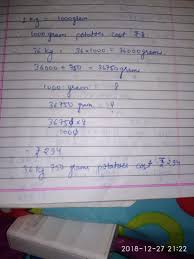 1 kg = 1000 gram
1000 gram potatoes cost ₹ 8
36 kg = 36×1000 = 36000 gram
36000 + 750 = 36750 gram
1000 gram = 8
36750 gram = 4
36750 × 8
1000
= ₹ 294
36 kg 750 gram potatoes cost ₹ 294
2018-12-27 21:22